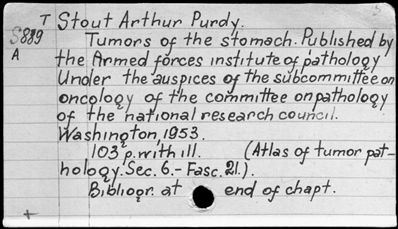 T Stout Arthur Purdy.
S889 Tumors of the stomach. Published by
A the Armed forces institute of pathology
Under the auspices of the subcommittee on
oncology of the committee on pathology
of the national research council.
Washington, 1953.
103 p. with ill. (Atlas of tumor pat-
hology. Sec. 6.- Fasc. 21.).
Bibliogr. at end of chapt.
+